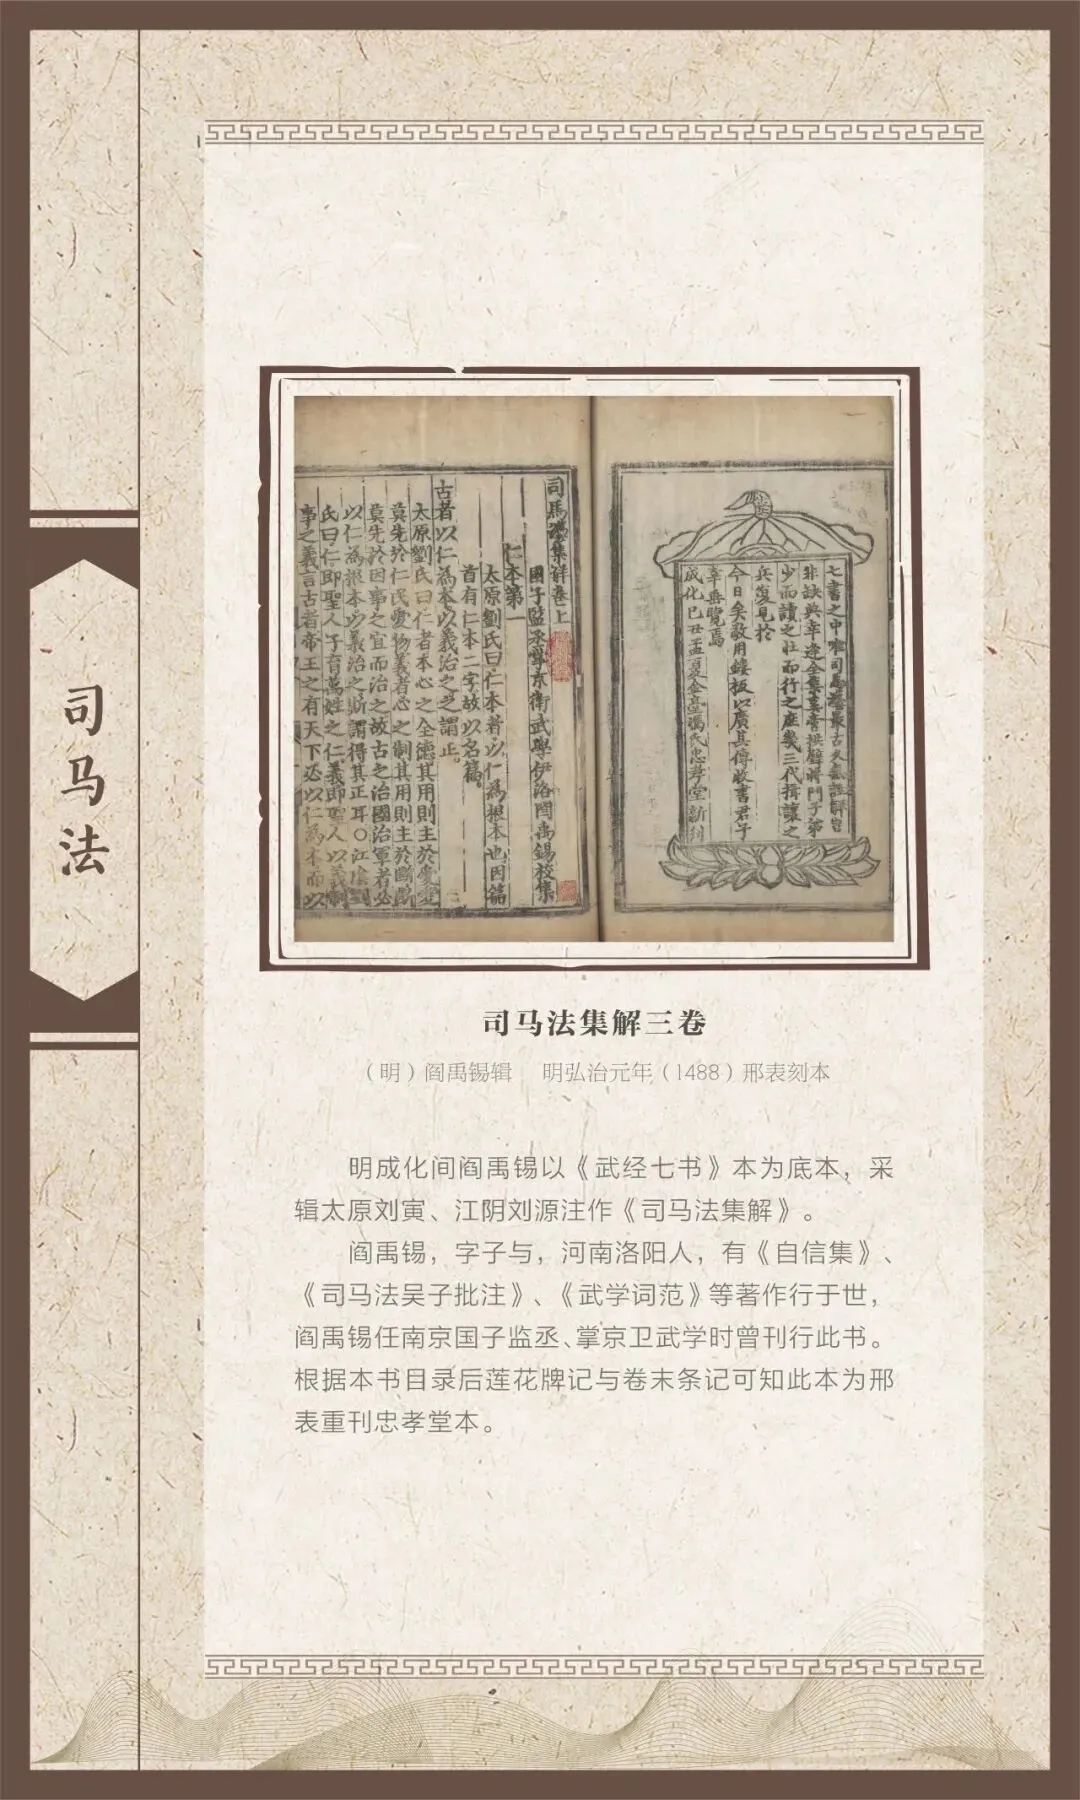 司马法
司馬法集解卷上
國子監丞掌京衛武學伊洛閻禹錫校集
仁本第一
太原劉氏曰仁本者以仁為根本也因篇
首有仁本二字故以名篇
古者以仁為本以義治之之謂正
太原劉氏曰仁者本心之全德其用則主於愛
莫先於仁民愛物義者心之制其用則主於斷
莫先於因事之宜而治之故古之治國治軍者必
以仁為根本以義治之所謂得其正耳〇江陰劉
氏曰仁即聖人子育萬姓之仁義即聖人以義制
事之義言古者帝王之有天下必以仁為本而以
七書之中唯司馬法最古久
非缺與幸達全集
少而讀之壯而行之庶幾三代揖讓之
兵復見於
今日矣敬用鋟板以廣其傳收書君子
幸垂覽焉
成化己丑孟夏金臺馮氏忠孝堂新刊
司马法集解三卷
（明）阎禹锡辑 明弘治元年（1488）邢表刻本
明成化间阎禹锡以《武经七书》本为底本，采
辑太原刘寅、江阴刘源注作《司马法集解》。
阎禹锡，字子与，河南洛阳人，有《自信集》、
《司马法吴子批注》、《武学词范》等著作行于世，
阎禹锡任南京国子监丞、掌京卫武学时曾刊行此书。
根据本书目录后莲花牌记与卷末条记可知此本为邢
表重刊忠孝堂本。